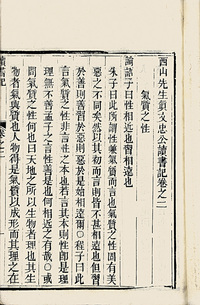 西山先生真文忠公讀書記卷之二
氣質之性
論語子曰性相近也習相遠也
朱子曰此所謂性兼氣質而言也氣質之性固有美
惡之不同矣然以其初而言則皆不甚相遠也但習
於善則善習於惡則惡於是始相遠爾○程子曰此
言氣質之性非言性之本也若言其本則性即是理
理無不善孟子之言性善是也何相近之有哉○或
問氣質之性何也曰天地之所以生物者理也其生
物者氣與質也人物得是氣質以成形而其理之在